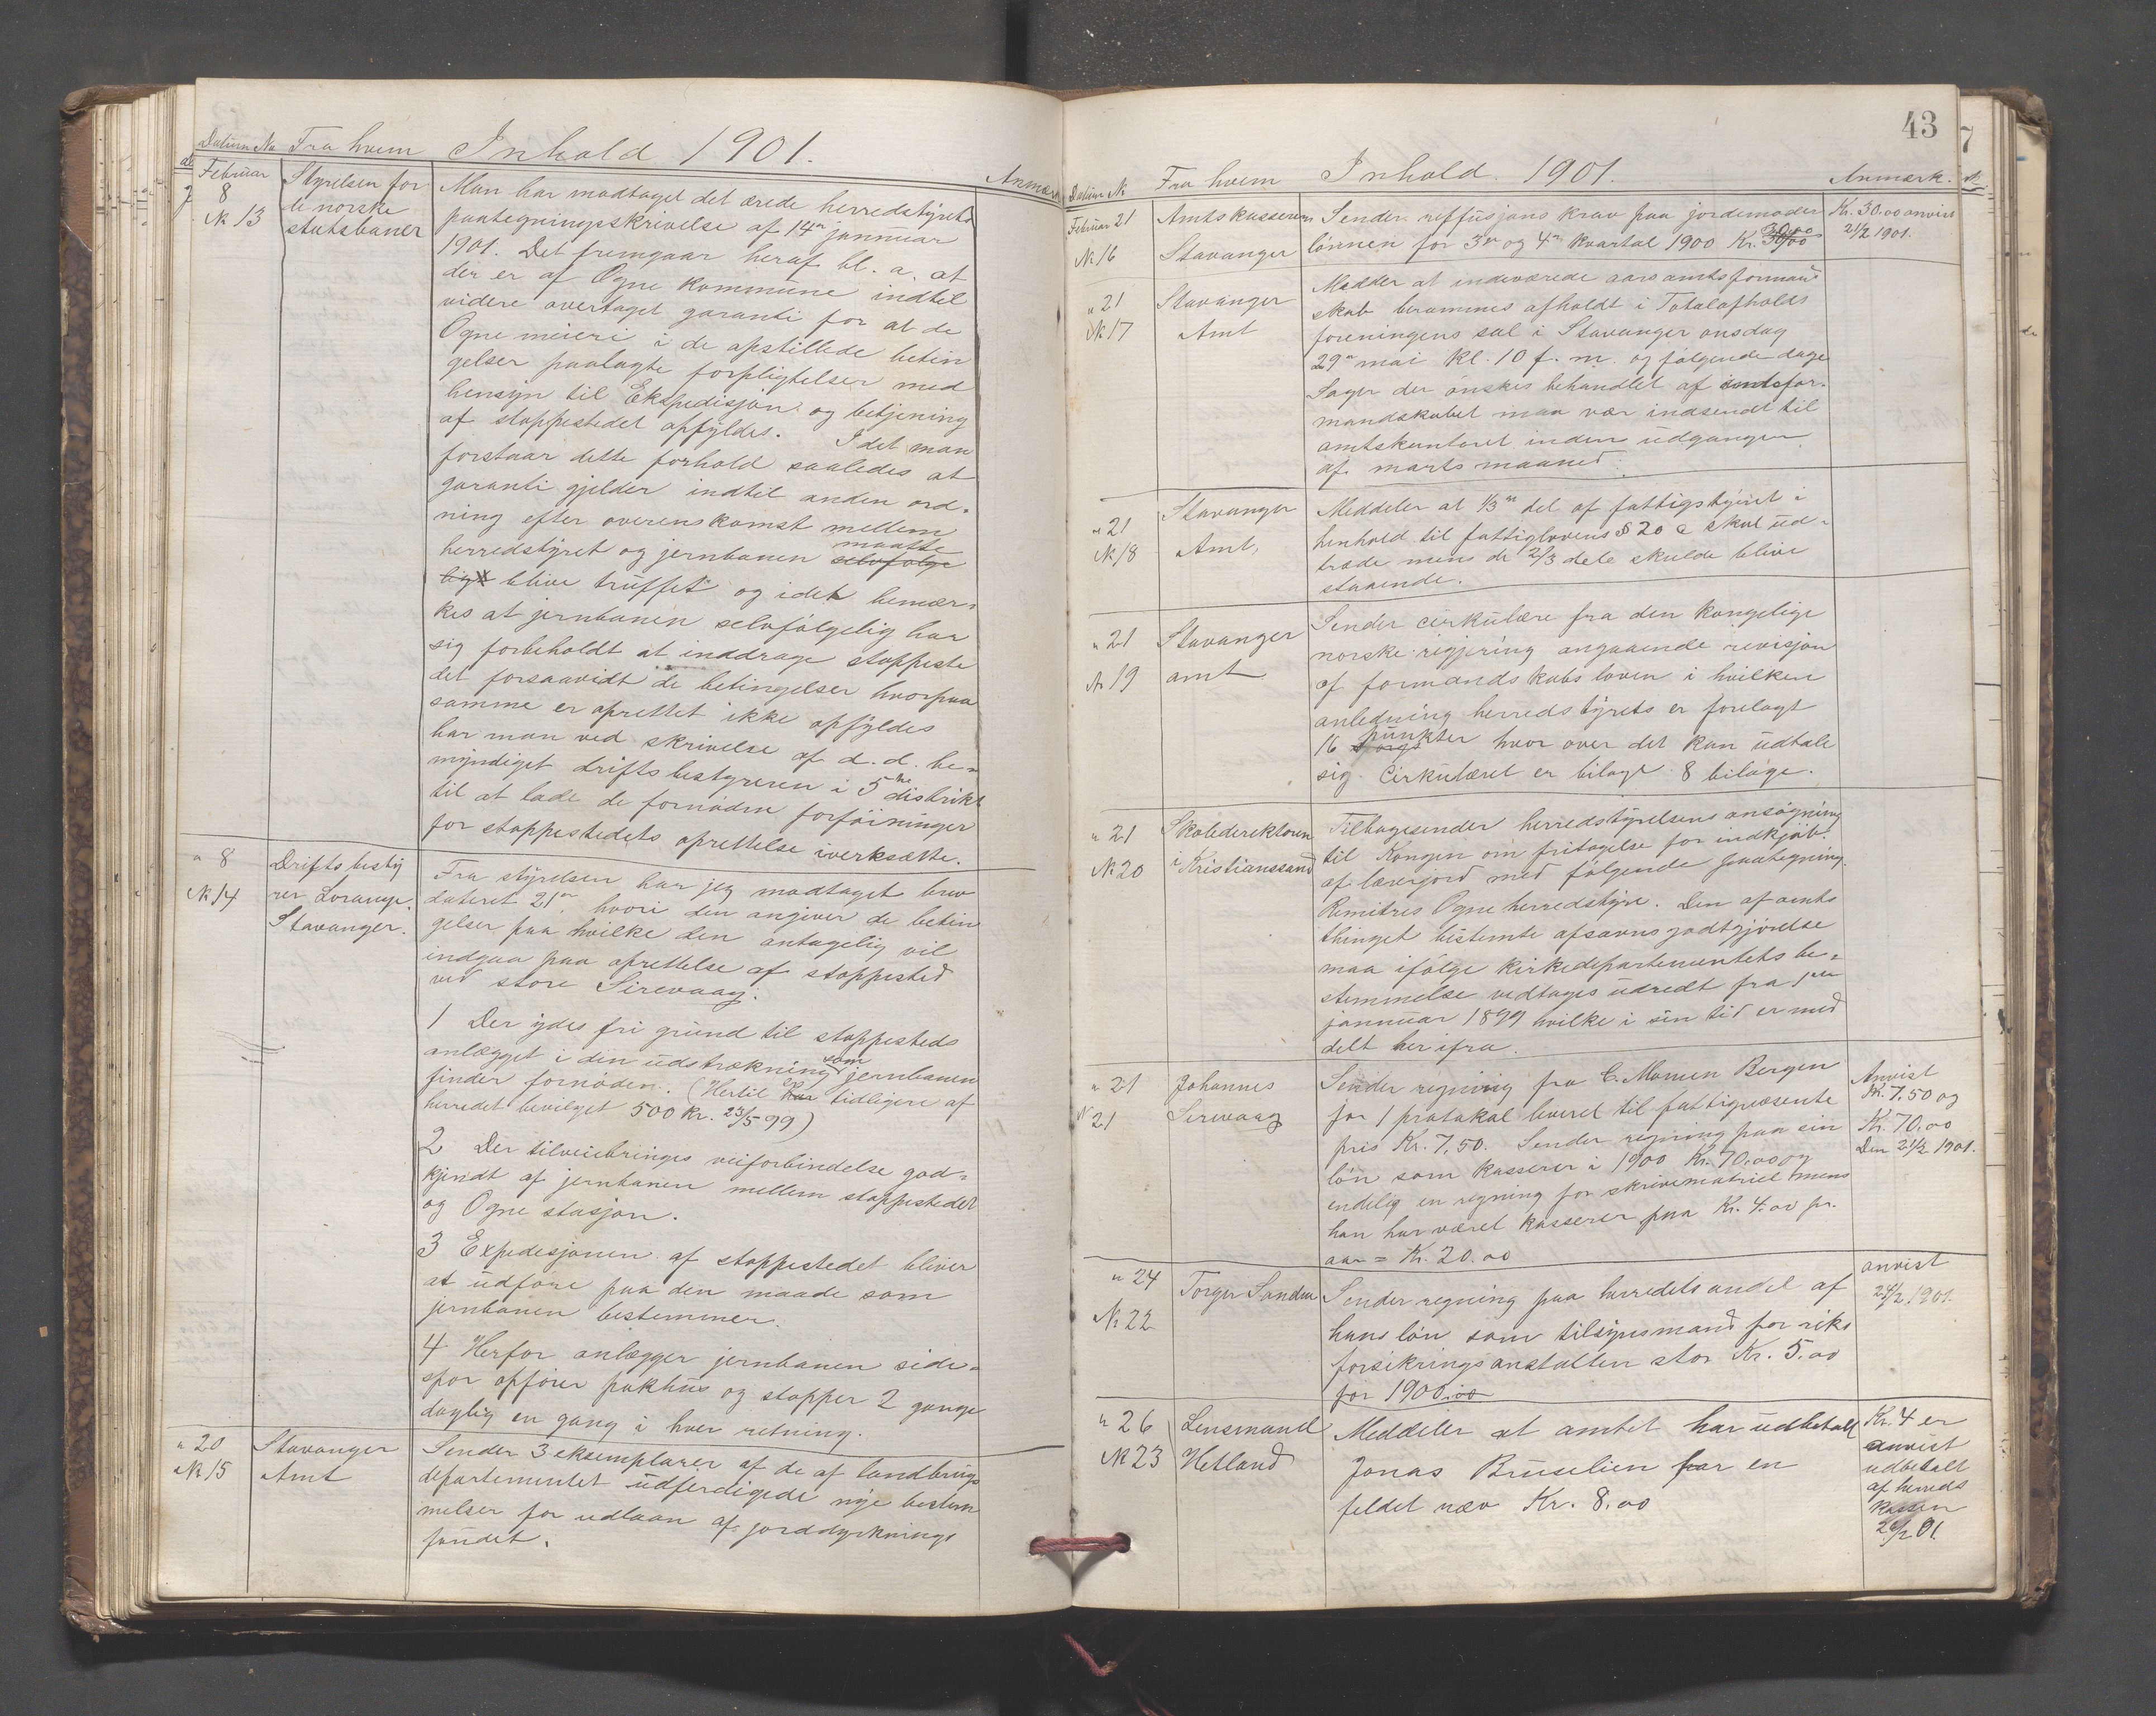 Datum No Fra hvem Inhold 1901. Anmærk
Februar
8
№ 13
Styrelsen for
de norske
statsbaner
Man har modtaget det ærede herredstyrets
paategningsskrivelse af 14de januar
1901. Det fremgaar heraf bl. a. at
der er af Ogne kommune indtil
videre overtaget garanti for at de
Ogne meieri i de opstillede betin
gelser paalagte forpligtelser med
hensyn til Ekspedisjon og betjening
af stoppestedet opfyldes. Idet man
forstaar dette forhold saaledes at
garanti gjelder indtil anden ord-
ning efter overenskomst mellem
herredstyret og jernbanen selvfølge maatte
lig blive truffet og idet bemær-
kes at jernbanen selvfølgelig har
sig forbeholdt at inddrage stoppeste
det forsaavidt de betingelser hvorpaa
samme er oprettet ikke opfyldes
har man ved skrivelse af d. d. be-
myndiget driftsbestyreren i 5te distrikt
til at lade de fornødne forføininger
for stoppestedets oprettelse iverksætte.
" 8
№ 14
Driftsbesty
rer
Stavanger.
Fra styrelsen har jeg modtaget brev
dateret 21de hvori den angiver de betin
gelser paa hvilke den antagelig vil
indgaa paa oprettelse af stoppested
ved store Sirevaag.
1 Der ydes fri grund til stoppesteds
anlægget i den udstrækning som jernbanen
finder fornøden. (Hertil er har tidligere af
herredet bevilget 500 kr. 23/5-99)
2 Der tilveiebringes veiforbindelse god-
kjendt af jernbanen mellem stoppestedet
og Ogne stasjon.
3 Expedesjonen af stoppestedet bliver
at udføre paa den maade som
jernbanen bestemmer.
4 Herfor anlægger jernbanen side-
spor opfører pakhus og stopper 2 gange
daglig en gang i hver retning.
" 20
№ 15
Stavanger
Amt
Sender 3 eksemplarer af de af landbrugs
departementet udferdigede nye bestem
melser for udlaan af jorddyrknings
fondet.
43
Datum № Fra hvem Inhold 1901. Anmærk.
Februar 21
№ 16
Amtskasseren
Stavanger
Sender reffusjons krav paa jordemoder
lønnen for 3de og 4de kvartal 1900 Kr. 30,00
Kr. 30.00 anvist
21/2 1901.
" 21
№ 17
Stavanger
Amt
Medder at indeværede aars amtsformand
skab berammes afholdt i Totalafholds
foreningens sal i Stavanger onsdag
29de mai Kl. 10 f. m. og følgende dage
Sager der ønskes behandlet af amtsfor-
mandskabet maa vær indsendt til
amtskontoret inden udgangen
af marts maaned.
" 21
№ 18
Stavanger
Amt,
Meddeler at 1/3 del af fattigstyret i
henhold til fattiglovens § 20 e skul ud-
træde mens de 2/3 dele skulde blive
staaende.
" 21
№ 19
Stavanger
amt
Sender cirkulære fra den kongelige
norske rigjering angaaende revisjon
af formandskabs loven i hvilken
anledning herredstyrets er forelagt
16 punkter hvor over det kan udtale
sig. Cirkulæret er bilagt 8 bilage.
" 21
№ 20
Skoledirektøren
i Kristianssand
Tilbagesender herredstyrelsens ansøgning
til Kongen om fritagelse for indkjøb
af lærerjord med følgende paategning.
Remitres Ogne herredstyre. Den af amts
thinget bestemte afsavnsgodtgjørelse
maa ifølge kirkedepartementets be-
stemmelse vedtages udredt fra 1ste
januar 1899 hvilke i sin tid er med
delt her ifra.
" 21
№ 21
Johannes
Sirevaag
Sender regning fra C. Monsen Bergen
for 1 protokal leveret til fattigvæsente
pris Kr. 7,50. Sender regning paa sin
løn som kasserer i 1900 Kr. 70,00 og
endelig en regning for skrivematriel mens
han har været kasserer paa Kr. 4.00 pr.
aar = Kr. 20.00
Anvist
Kr. 7,50 og
Kr. 70.00
Den 21/2 1901.
" 24
№ 22
Torger Sandve
Sender regning paa herredets andel af
hans løn som tilsynsmand for riks
forsikringsanstalten stor Kr. 5.00
for 1900.00
anvist
24/2 1901.
" 26
№ 23
Lensmand
Hetland
Meddeler at amtet har udbetalt
Jonas Bruselien for en
feldet ræv Kr. 8.00
Kr. 4 er
anvist
udbetalt
af herreds
kassen
26/2 01.